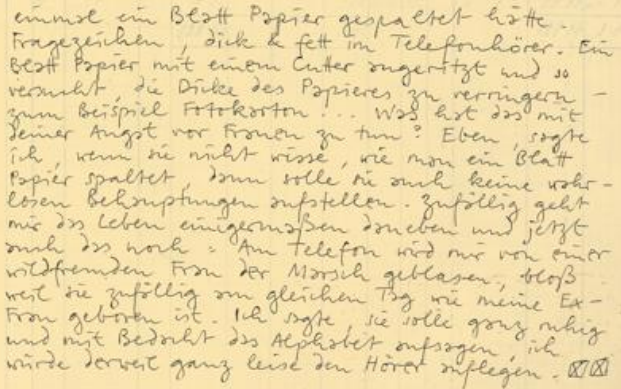 einmal ein Blatt Papier gespaltet hätte.
Fragezeichen, dick & fett im Telefonhörer. Ein
Blatt Papier mit einem Cutter angeritzt und so
versucht, die Dicke des Papieres zu verringern –
zum Beispiel Fotokarton... Was hat das mit
deiner Angst vor Frauen zu tun? Eben, sagte
ich, wenn sie nicht wisse, wie man ein Blatt
Papier spaltet, dann solle sie auch keine wahr-
losen Behauptungen aufstellen. Zufällig geht
mir das Leben einigermaßen daneben und jetzt
auch das noch: Am Telefon wird mir von einer
wildfremden Frau der Marsch geblasen, bloß
weil sie zufällig am gleichen Tag wie meine Ex-
Frau geboren ist. Ich sagte, sie solle ganz ruhig
und mit Bedacht das Alphabet aufsagen, ich
würde derweil ganz leise den Hörer auflegen.